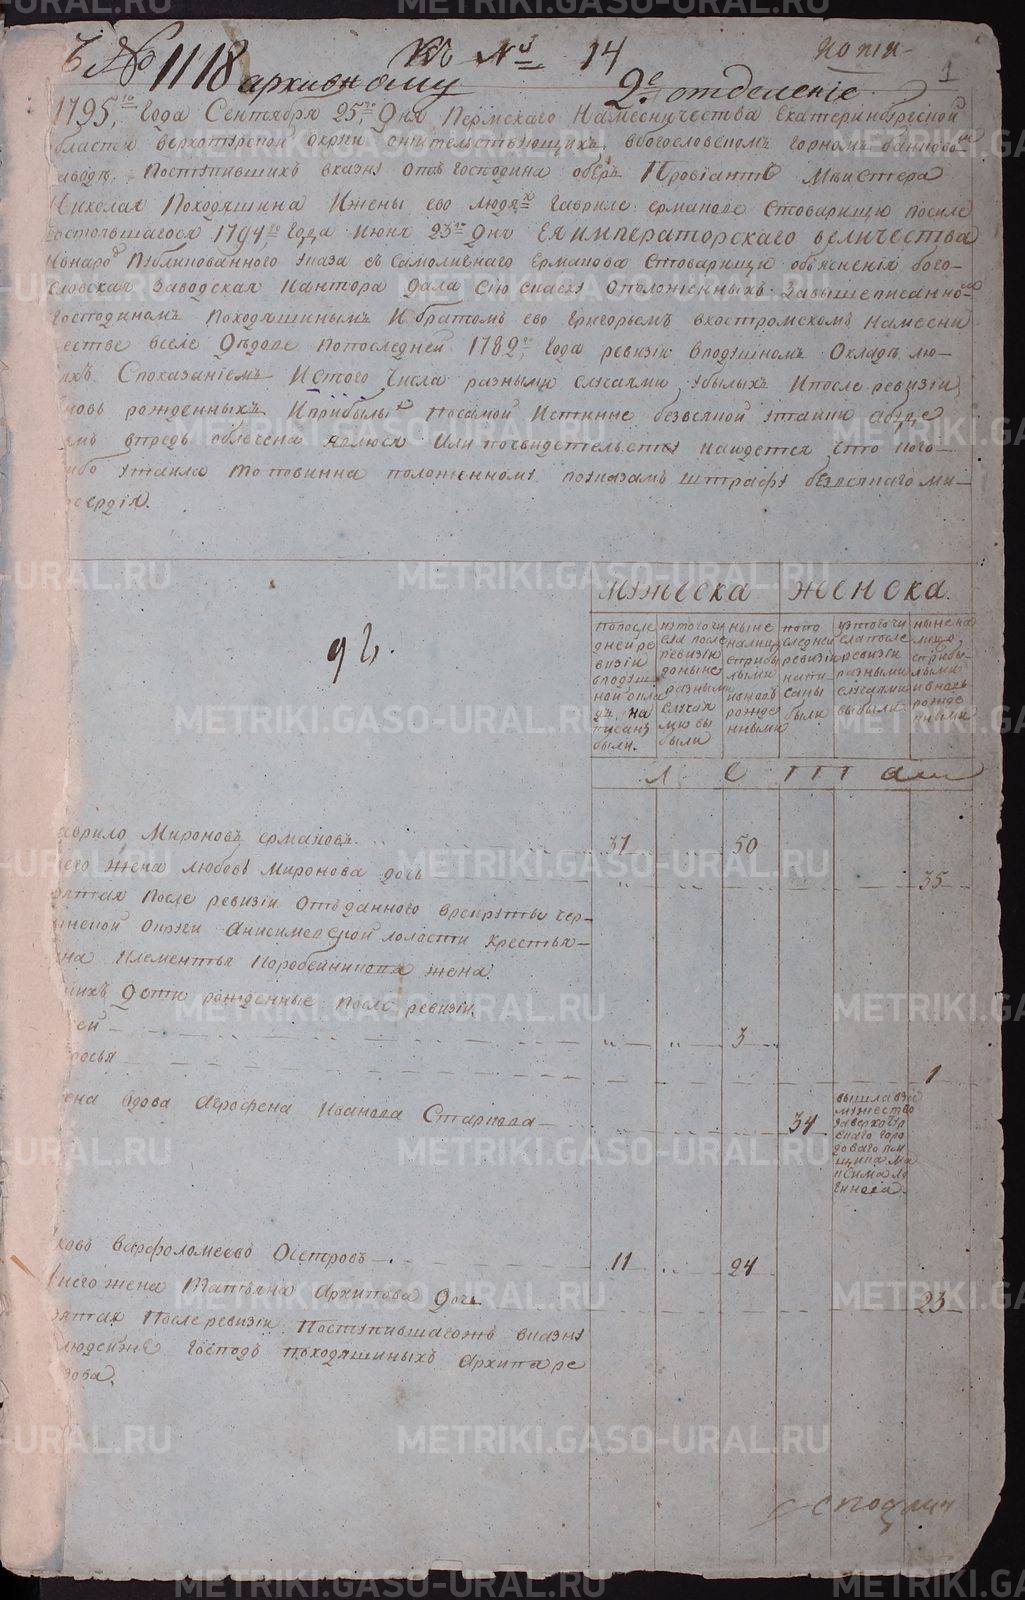 Къ № 14
копія
къ № 1118 архивному
2е отделение
1
1795го года Сентября 25го дня Пермскаго Намесничества Екатеринбургской
области верхотурской округи жительствующихъ вбогословскомъ горномъ
заводе Поступившихъ вказну отъ господина оберъ Провіантъ Мейстера
Николая Походяшина Ижены ево людя Гавриле ермакове Стоварищи после
состоявшагося 1794го года Июня 23го дня Ея императорскаго величества
Публикованного указа съ Самоличнаго Ермакова Стоварищи объяснения бого-
словская Заводская Кантора дала Сию скаску Оположенныхъ Завышеписанно
господиномъ Походяшинымъ Ибратомъ ево Григорьемъ вкостромскомъ Намесни
честве вселе Попоследней 1782го года ревизіи вподушномъ Окладе лю-
дяхъ Споказаніемъ Истого числа разными случаями убылыхъ Ипосле ревизіи
вновь рожденныхъ Иприбылы Посамой Истинне безвсякой утайки абуде
впредь обличена явлюся Или посвидетельству найдется что кого-
либо утаила То повинна положенному поуказамъ штрафу безвсякаго ми-
лосердія.
мужеска женска.
попосле дней ре визіи вподуш ной окладъ написаны были.
изтого чи сла после ревизіи доныне разными случая ми вы были
ныне налицо сприбы лыми ивновь рожде нными
попо следней ревизіи напи саны были
изтого чи сла после ревизіи разными случаями выбыли
ныне на лицо сприбы лыми ивновь рожде нными
л е т т а
Гаврило Мироновъ ермаковъ. 37 50
у него жена любовь Миронова дочь 35
взятая После ревизіи Отъданного врекруты чер-
дынской Округи Анисимовской волости крестья-
нина Клементья Коробейникова жена
уних дети рожденные после ревизіи.
3
1
вдова Агрофена Иванова Старкова 34 вышла взамужество заверхотурскаго городоваго
Яковъ варфоломеевъ Островъ 11 24
у него жена Татьяна Архипова дочь 23
взятая После ревизіи Поступившагожъ вказну
излюдейже Господъ походяшиныхъ Архипа